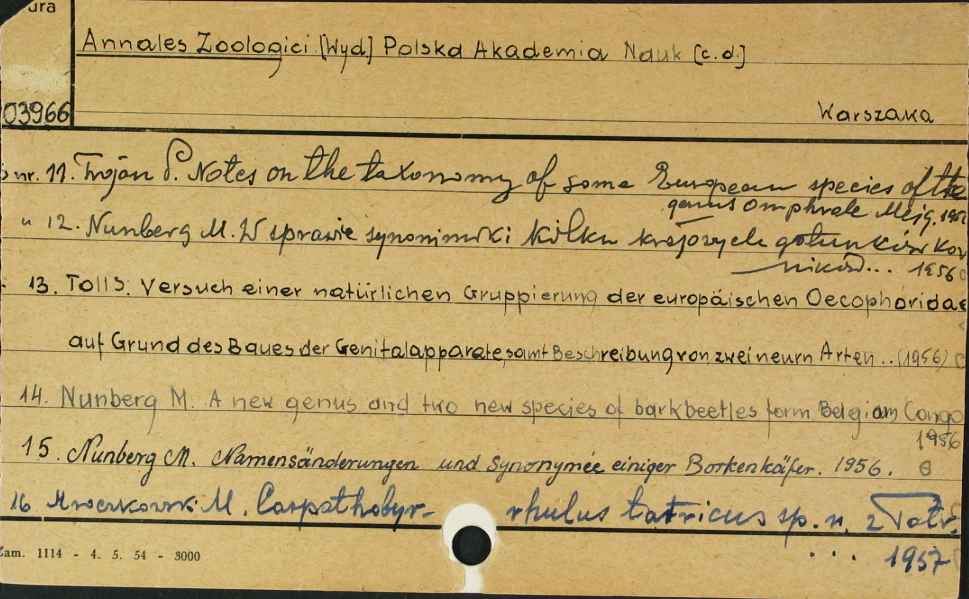 ura
Annales Zoologici [Wyd] Polska Akademia Nauk [c.d.]
03966
Warszawa
nr. 11. Trojan P. Notes on the taxonomy of some European species of the
genus Omphrale Meig. 1956
" 12. Nunberg M. W sprawie synonimiki kilku krajowych gatunków kor
ników... 1956
13. Toll S. Versuch einer natürlichen Gruppierung der europäischen Oecophoridae
auf Grund des Baues der Genitalapparate samt Beschreibung von zwei neurn Arten .. (1956)
14. Nunberg M. A new genus and two new species of barkbeetles form Belgian Congo
1956
15. Nunberg M. Namensänderungen und Synonymie einiger Borkenkäfer. 1956.
16 M. Carpathobyr-rhulus tatricus sp. n. z Tatr.
... 1957
Zam. 1114 - 4. 5. 54 - 3000